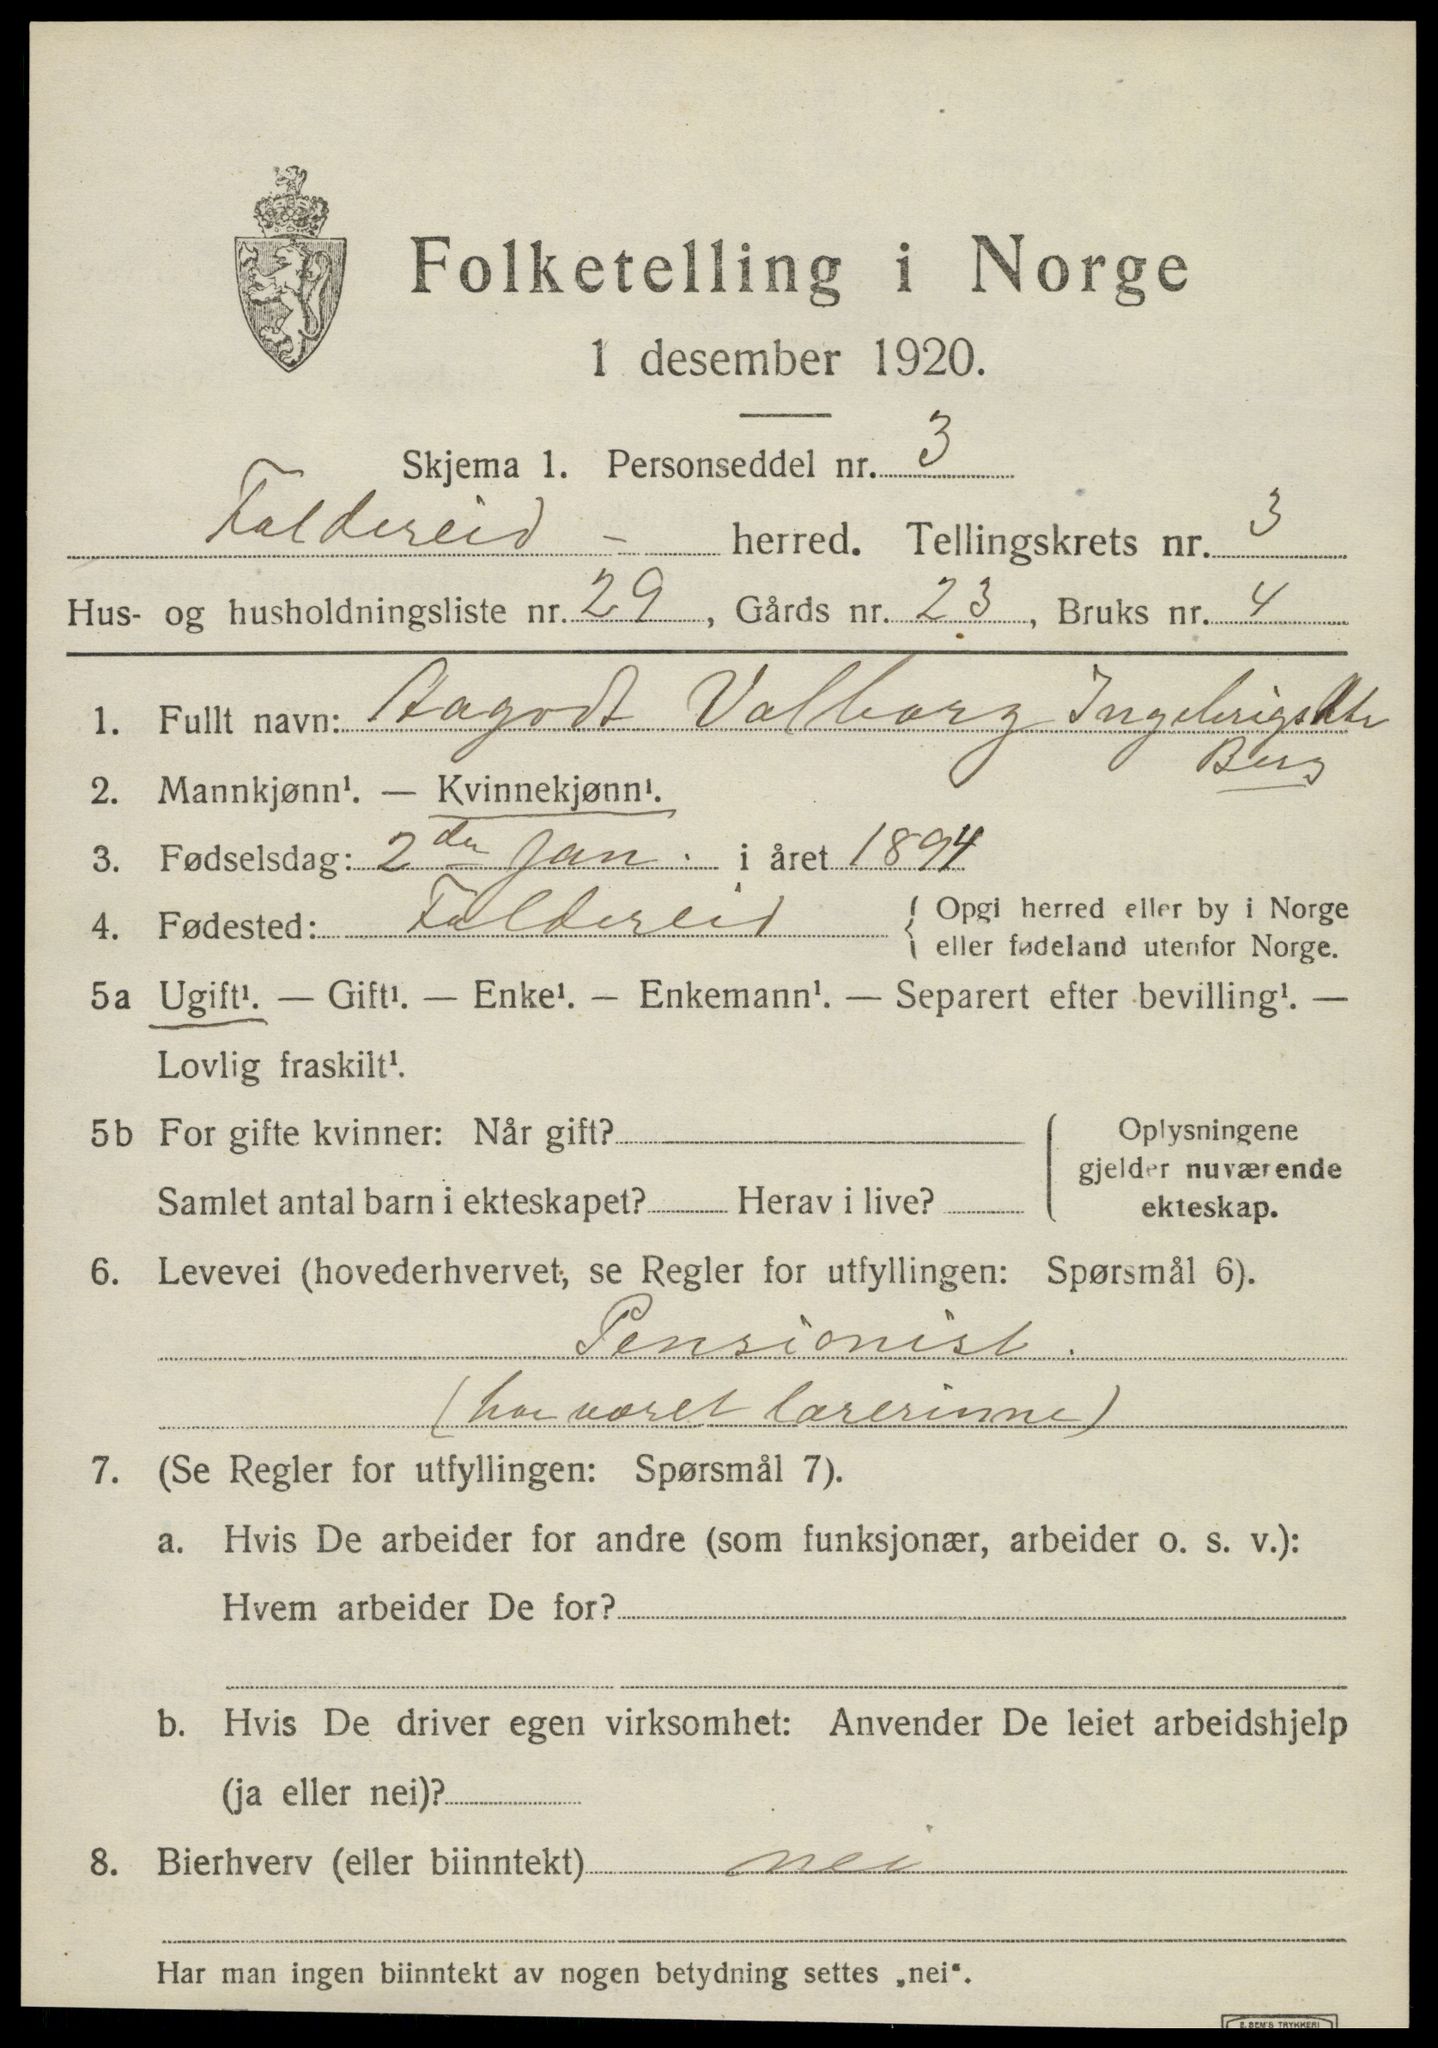 Folketelling i Norge
1 desember 1920.
Skjema 1. Personseddel nr. 3
Foldereid - herred. Tellingskrets nr. 3
Hus- og husholdningsliste nr. 29, Gårds nr. 23, Bruks nr. 4
1. Fullt navn: Aagodt Valborg Ingebrigtsdtr
Berg
2. Mannkjønn¹. — Kvinnekjønn¹.
3. Fødselsdag: 2den Jan. i året 1894
4. Fødested: Foldereid { Opgi herred eller by i Norge
eller fødeland utenfor Norge.
5a Ugift¹. — Gift¹. — Enke¹. — Enkemann¹. — Separert efter bevilling¹. —
Lovlig fraskilt¹.
5b For gifte kvinner: Når gift? Oplysningene
gjelder nuværende
Samlet antal barn i ekteskapet? Herav i live? ekteskap.
6. Levevei (hovederhvervet, se Regler for utfyllingen: Spørsmål 6).
Pensionist.
(har været lærerinne)
7. (Se Regler for utfyllingen: Spørsmål 7).
a. Hvis De arbeider for andre (som funksjonær, arbeider o. s. v.):
Hvem arbeider De for?
b. Hvis De driver egen virksomhet: Anvender De leiet arbeidshjelp
(ja eller nei)?
8. Bierhverv (eller biinntekt) nei
Har man ingen biinntekt av nogen betydning settes „nei“.
E. SEM'S TRYKKERI